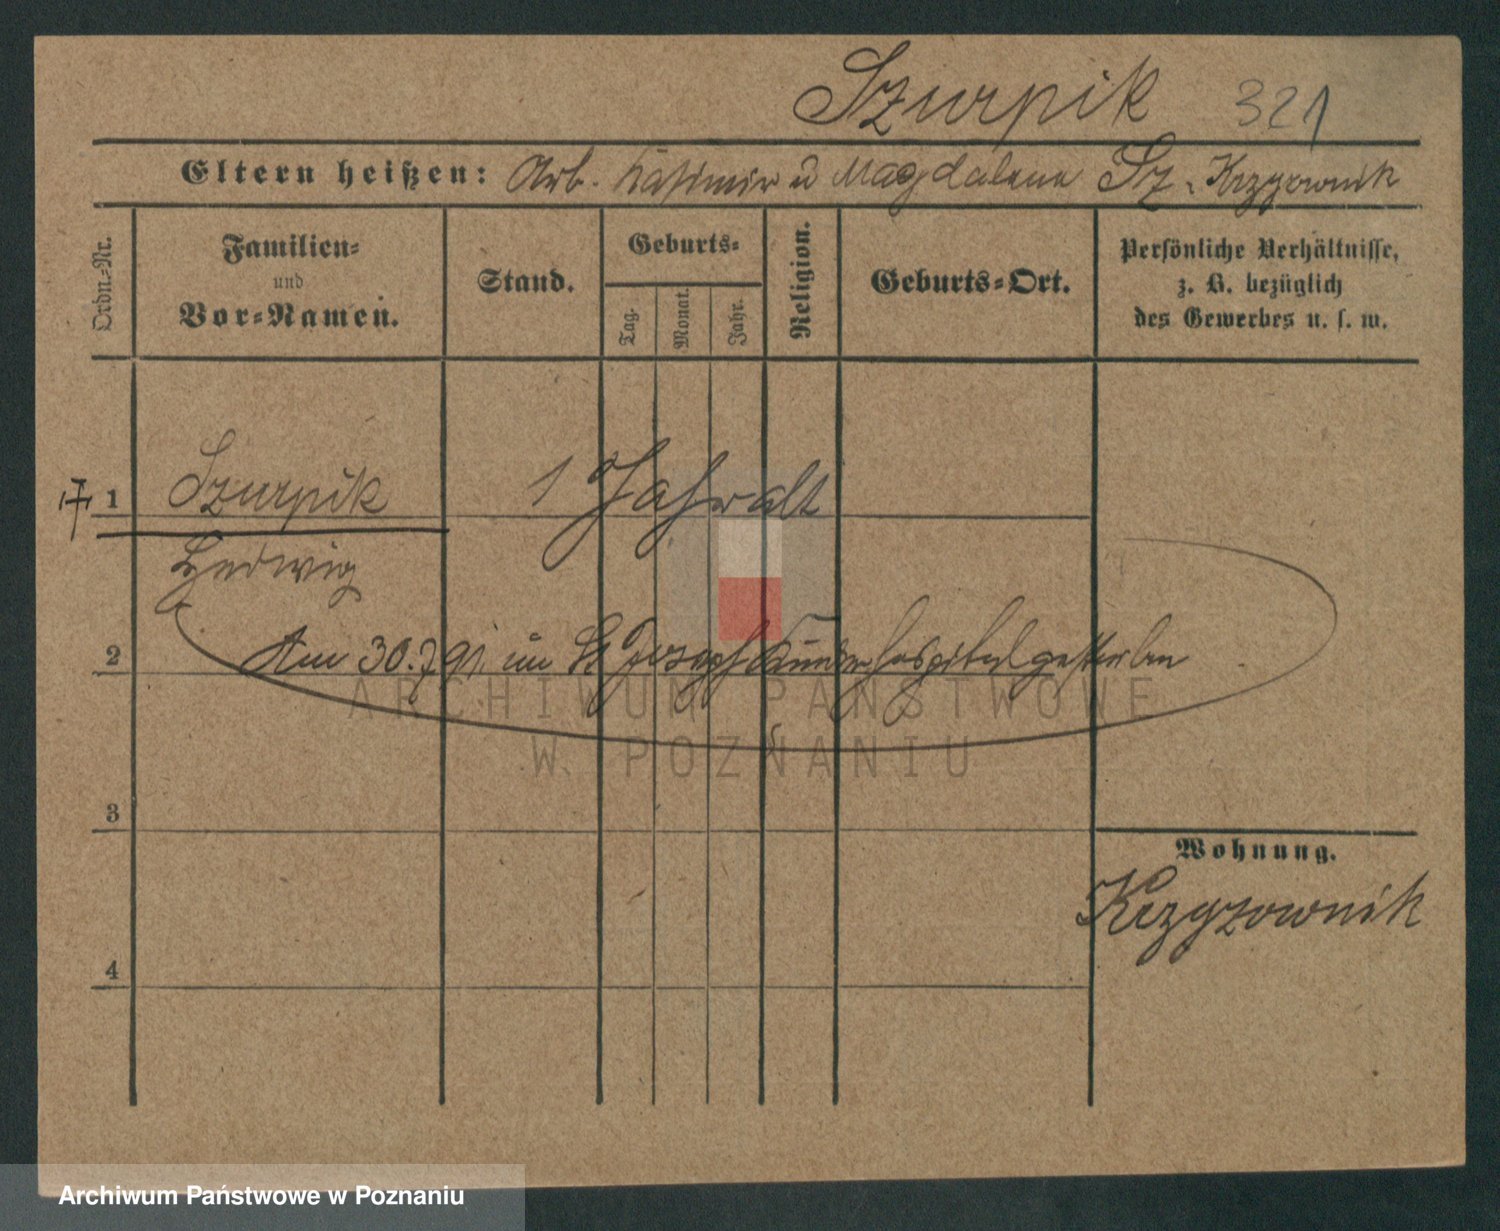 Szurpik 321
Eltern heißen: Arb. Kasimir u Magdalena Sz. Krzyzownik
Ordn.-Nr.
Familien-
und
Vor-Namen.
Stand.
Geburts-
Tag.
Monat.
Jahr.
Religion.
Geburts-Ort.
Persönliche Verhältnisse,
z. B. bezüglich
des Gewerbes u. s. w.
1 Szurpik 1 Jahr alt
Hedwig
2 Am 30.7.91. im St Joseph Kinderhospital gestorben
ARCHIWUM PAŃSTWOWE
W POZNANIU
3
Wohnung.
Krzyzownik
4
Archiwum Państwowe w Poznaniu